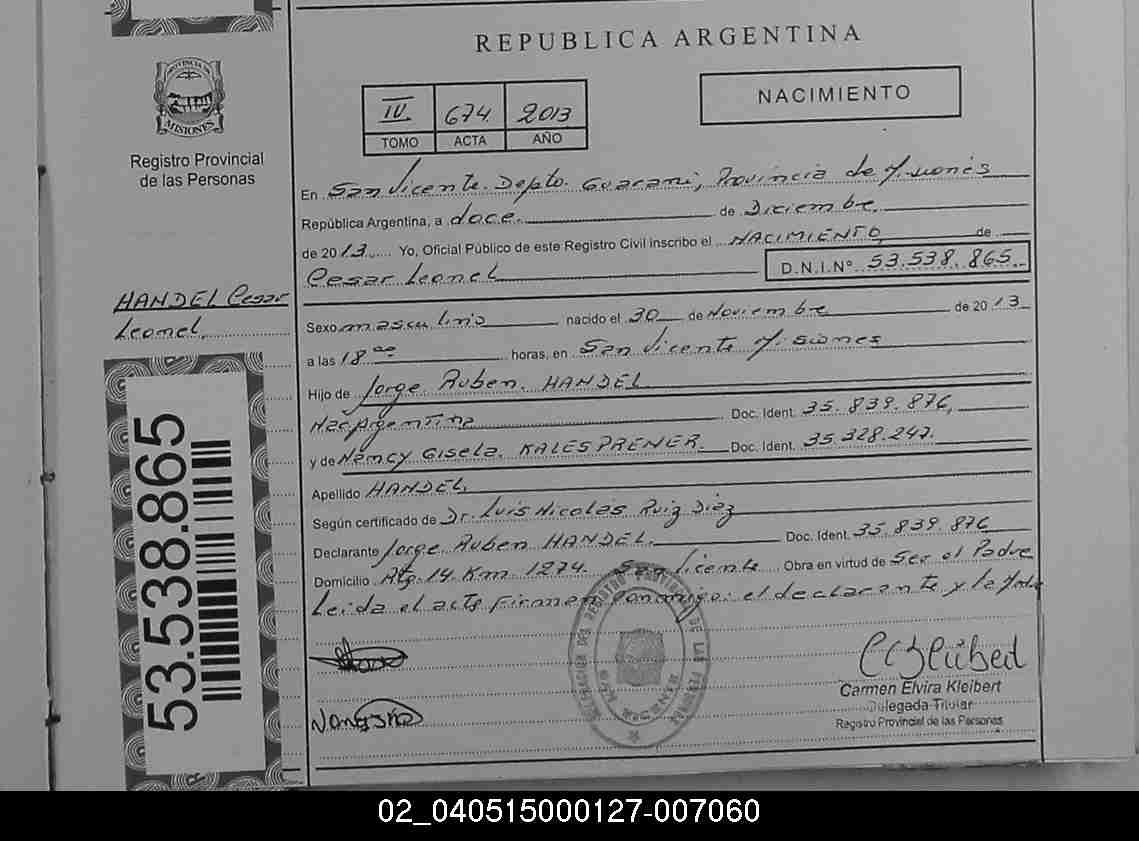 REPUBLICA ARGENTINA
PROVINCIA DE
MISIONES
Registro Provincial
de las Personas
IV 674 2013
TOMO ACTA AÑO
NACIMIENTO
En San Vicente. Depto. Guaraní, Provincia de Misiones
República Argentina, a doce. de Diciembre.
de 2013. Yo, Oficial Público de este Registro Civil inscribo el NACIMIENTO, de
Cesar Leonel D.N.I.Nº 53.538.865.
HANDEL Cesar
Leonel.
Sexo masculino nacido el 30 de Noviembre de 2013
a las 18 ºº horas, en San Vicente Misiones
Hijo de Jorge Ruben. HANDEL
Nac Argentina Doc. Ident. 35.839.876,
y de Nancy Gisela. KALESPRENER. Doc. Ident. 35.328.247.
Apellido HANDEL.
Según certificado de Dr. Luis Nicolás Ruiz Diez
Declarante Jorge Ruben HANDEL. Doc. Ident. 35.839.876
Domicilio Rta. 14. Km. 1274. San Vicente Obra en virtud de Ser el Padre
Leida el acta Firman conmigo: el declarante y la
53.538.865
53.538.865
Carmen Elvira Kleibert
Delegada Titular
Registro Provincial de las Personas
02_040515000127-007060